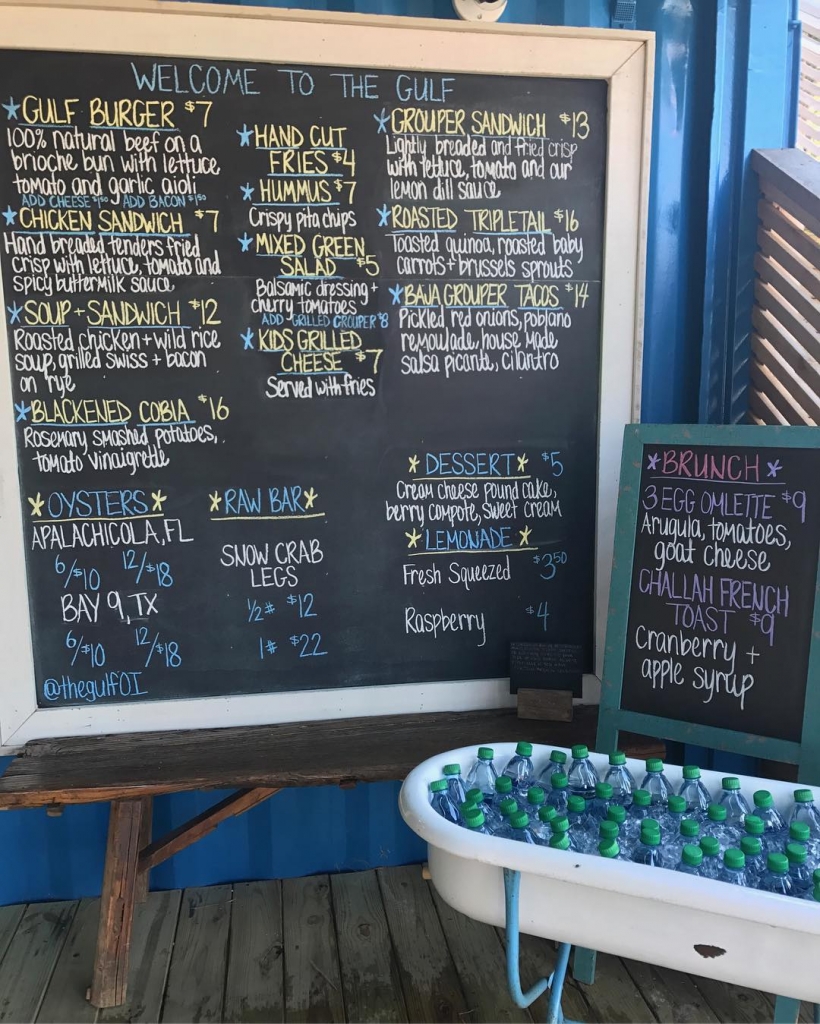 WELCOME TO THE GULF
*GULF BURGER $7
100% natural beef on a
brioche bun with lettuce
tomato and garlic aioli
ADD CHEESE $1.50 ADD BACON $1.50
*CHICKEN SANDWICH $7
Hand breaded tenders fried
crisp with lettuce, tomato and
spicy buttermilk sauce
*SOUP + SANDWICH $12
Roasted chicken + wild rice
soup, grilled swiss + bacon
on rye
*BLACKENED COBIA $16
Rosemary smashed potatoes,
tomato vinaigrette
*HAND CUT
FRIES $4
*HUMMUS $7
Crispy pita chips
*MIXED GREEN
SALAD $5
Balsamic dressing +
cherry tomatoes
ADD GRILLED GROUPER $8
*KIDS GRILLED
CHEESE $7
Served with fries
*GROUPER SANDWICH $13
Lightly breaded and fried crisp
with lettuce, tomato and our
lemon dill sauce
*ROASTED TRIPLETAIL $16
Toasted quinoa, roasted baby
carrots + brussels sprouts
*BAJA GROUPER TACOS $14
Pickled red onions, poblano
remoulade, house made
salsa picante, cilantro
*OYSTERS*
APALACHICOLA, FL
6/$10 12/$18
BAY 9, TX
6/$10 12/$18
@thegulfOI
*RAW BAR*
SNOW CRAB
LEGS
½# $12
1# $22
*DESSERT* $5
Cream cheese pound cake,
berry compote, sweet cream
*LEMONADE*
Fresh Squeezed $3.50
Raspberry $4
*BRUNCH*
3 EGG OMLETTE $9
Arugula, tomatoes,
goat cheese
CHALLAH FRENCH
TOAST $9
Cranberry +
apple syrup